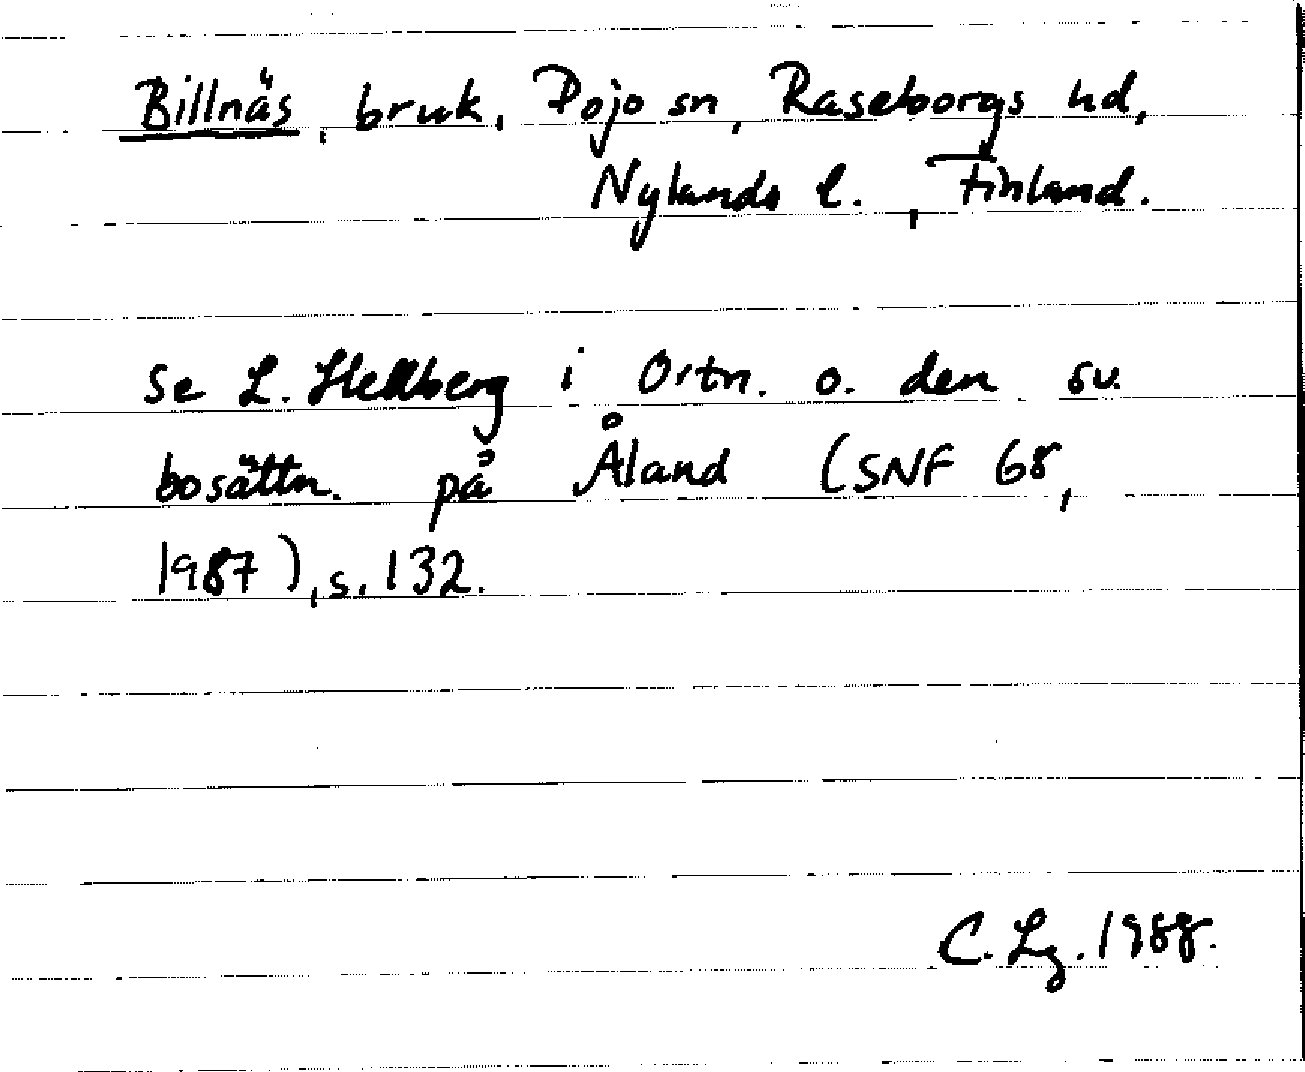 Billnäs, bruk, Pojo sn, Raseborgs hd,
Nylands l., Finland.
Se L. Hellberg i Ortn. o. den sv.
bosättn. på Åland (SNF 68,
1987), s. 132.
C. Lg. 1988.